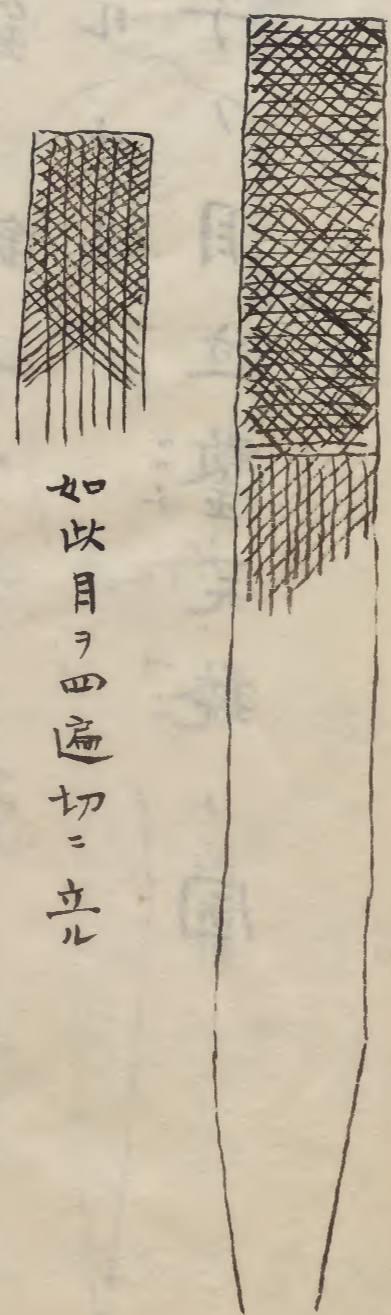 如此目ヲ四遍切ニ立ル